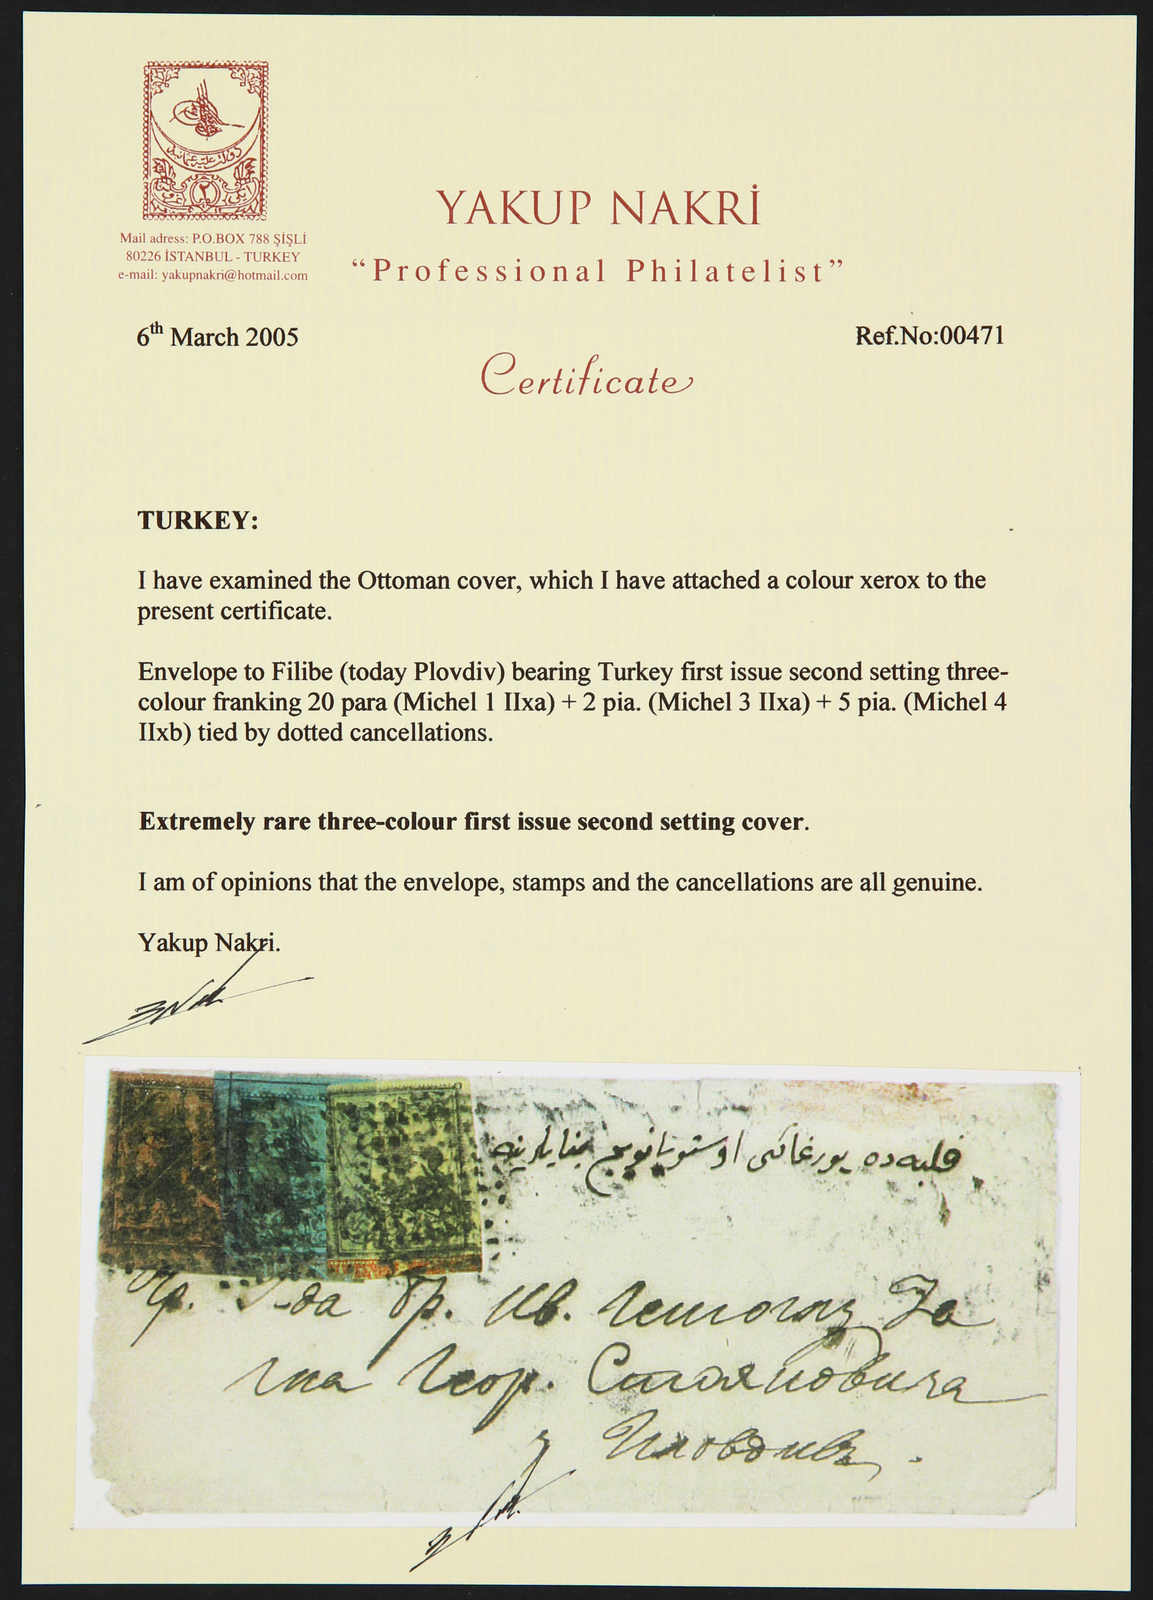 دولت علیه عثمانیه
٢
Mail adress: P.O.BOX 788 ŞİŞLİ
80226 İSTANBUL - TURKEY
e-mail: yakupnakri@hotmail.com
YAKUP NAKRİ
“Professional Philatelist”
6th March 2005
Ref.No:00471
Certificate
TURKEY:
I have examined the Ottoman cover, which I have attached a colour xerox to the
present certificate.
Envelope to Filibe (today Plovdiv) bearing Turkey first issue second setting three-
colour franking 20 para (Michel 1 IIxa) + 2 pia. (Michel 3 IIxa) + 5 pia. (Michel 4
IIxb) tied by dotted cancellations.
Extremely rare three-colour first issue second setting cover.
I am of opinions that the envelope, stamps and the cancellations are all genuine.
Yakup Nakri.
فلبه ده يورغاكى اوستويانويچ جنابلرينه
Гр. Г-да бр. Ив. Гешоглу За
Геор. Стояновича
Пловдивъ.